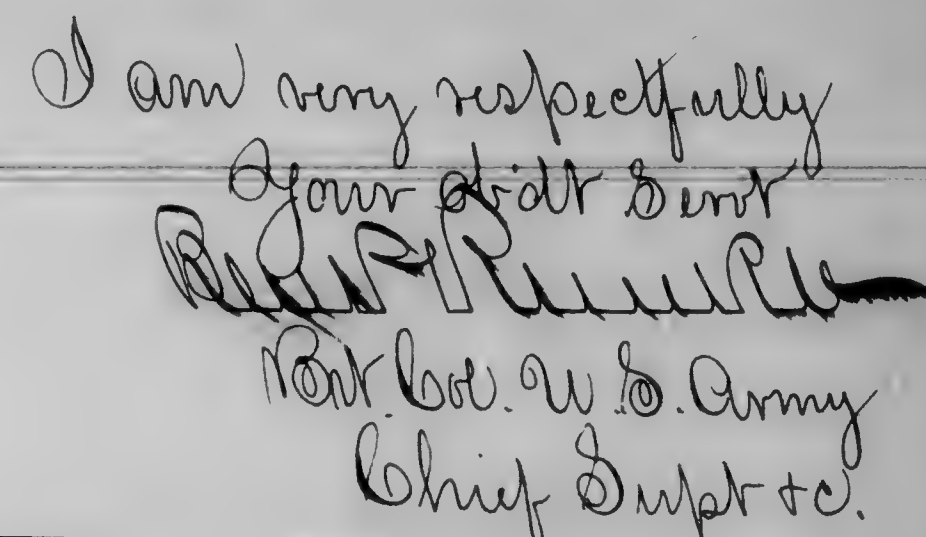 I am very respectfully
Your Obdt Servt
Benj P Runkle
Bvt. Col. U.S. Army
Chief Supt +c.